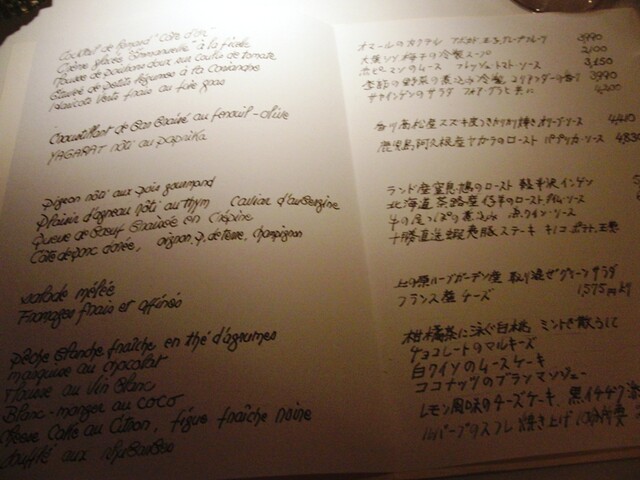 Cocktail de homard "Côte d'Or"
Crème glacée "Emmanuelle" à la
Mousse de poivrons doux sur coulis de tomate
Etuvée de petits légumes à la Coriandre
Haricots Verts frais au foie gras
Croustillant de Bar au fenouil-olive
YAGARAT rôti au paprika
Pigeon rôti aux pois gourmand
Plaisir d'agneau rôti au thym Caviar d'aubergine
Queue de Bœuf en Crépine
Côte de porc dorée, oignon, p. de terre, champignon
Salade mélée
Fromages frais et affinés
Pêche Blanche fraîche en thé d'agrumes
marquise au chocolat
Mousse au Vin Blanc
Blanc-manger au coco
Cheese Cake au Citron, figue fraîche noire
Soufflé aux rhubarbes
オマールのカクテル アボカド 玉子 グレープルーツ 3990
冷製スープ 2100
赤ピーマンのムース フレッシュトマトソース 3,150
季節の野菜の煮込み冷製 コリアンダーの香り 3990
サヤインゲンのサラダ フォアグラと共に 4,200
香川高松産スズキ オリーブソース 4410
鹿児島阿久根産ヤガラのロースト パプリカソース 4830
ランド産窒息鳩のロースト 軽井沢インゲン
北海道茶路産仔羊のロースト
牛の尾っぽの煮込み 赤ワインソース
十勝直送 豚ステーキ キノコ ポテト、玉葱
上の原ハーブガーデン産 取り混ぜグリーンサラダ
フランス産チーズ 1,575円より
柑橘茶に泳ぐ白桃 ミントを散らして
チョコレートのマルキーズ
白ワインのムースケーキ
ココナッツのブランマンジェー
レモン風味のチーズケーキ、黒イチヂク添
ルバーブのスフレ 焼き上げ